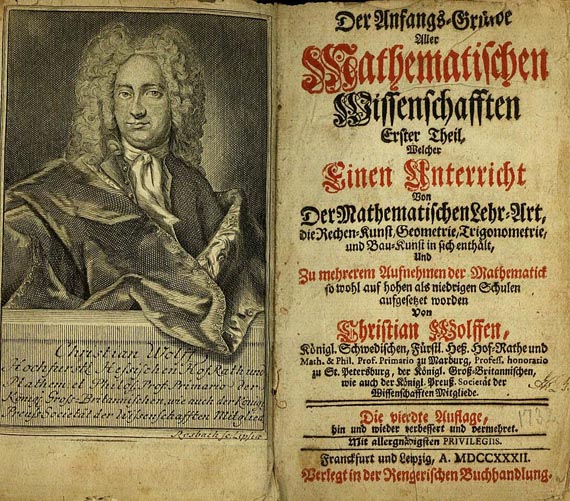 Christian Wolff,
Hochfürstl. Hessischer HofRath und
Mathem. et Philos. Prof. Primario, den
Königl. Gros-Britannischen, wie auch der Königl.
Preuss. Societät der Wissenschafften Mitglied
Rosbach sc. Lipsiæ
Der Anfangs-Gründe
Aller
Mathematischen
Wissenschafften
Erster Theil,
Welcher
Einen Unterricht
Von
Der Mathematischen Lehr-Art,
die Rechen-Kunst, Geometrie, Trigonometrie,
und Bau-Kunst in sich enthält,
Und
Zu mehrerem Aufnehmen der Mathematick
so wohl auf hohen als niedrigen Schulen
aufgesetzet worden
Von
Christian Wolffen,
Königl. Schwedischen, Fürstl. Heß. Hof-Rathe und
Math. & Phil. Prof. Primario zu Marburg, Profess. honorario
zu St. Petersburg, der Königl. Groß-Britannischen,
wie auch der Königl. Preuß. Societät der
Wissenschafften Mitgliede.
Die vierdte Auflage,
hin und wieder verbessert und vermehret.
1732
Mit allergnädigsten PRIVILEGIIS.
Franckfurt und Leipzig, A. MDCCXXXII.
Verlegt in der Rengerischen Buchhandlung.